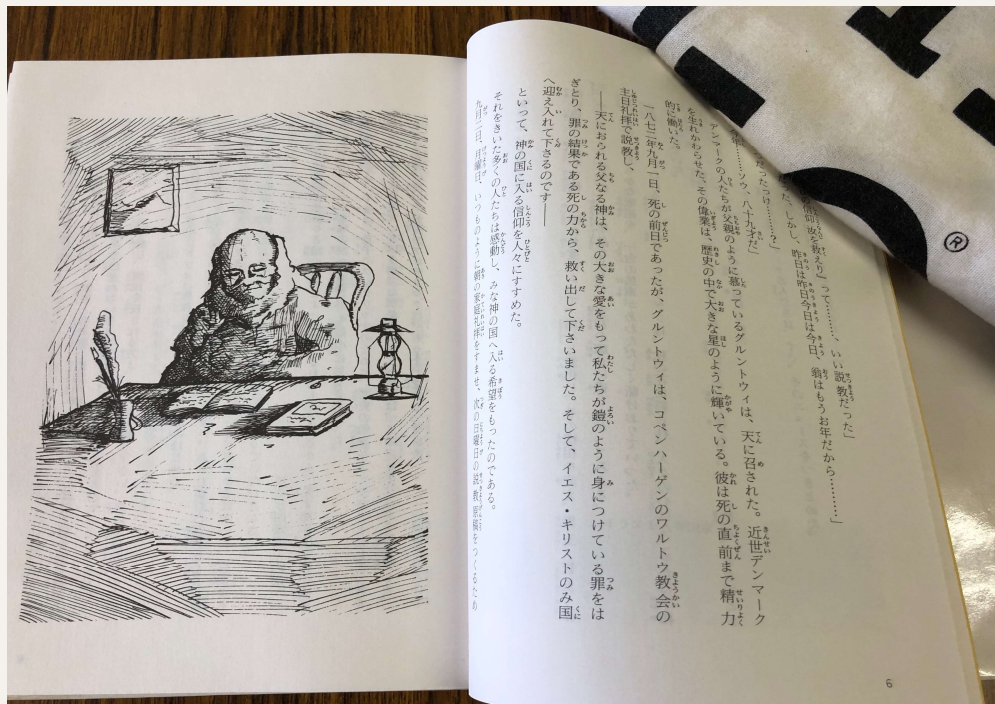 信仰、汝を救えり」って………、いい説教だった」
た、しかし、昨日は昨日今日は今日、翁はもうお年だから………」
だったっけ……？」
今年……ソウ、八十九才だ」
デンマークの人たちが父親のように慕っているグルントウィは、天に召された。近世デンマーク
を生れかわらせた、その偉業は、歴史の中で大きな星のように輝いている。彼は死の直前まで精力
的に働いた。
一八七二年九月一日、死の前日であったが、グルントウィは、コペンハーゲンのワルトウ教会の
主日礼拝で説教し、
――天におられる父なる神は、その大きな愛をもって私たちが鎧のように身につけている罪をは
ぎとり、罪の結果である死の力から、救い出して下さいました。そして、イエス・キリストのみ国
へ迎え入れて下さるのです――
といって、神の国に入る信仰を人々にすすめた。
それをきいた多くの人たちは感動し、みな神の国へ入る希望をもったのである。
九月二日、月曜日、いつものように朝の家庭礼拝をすませ、次の日曜日の説教原稿をつくるため
6
®